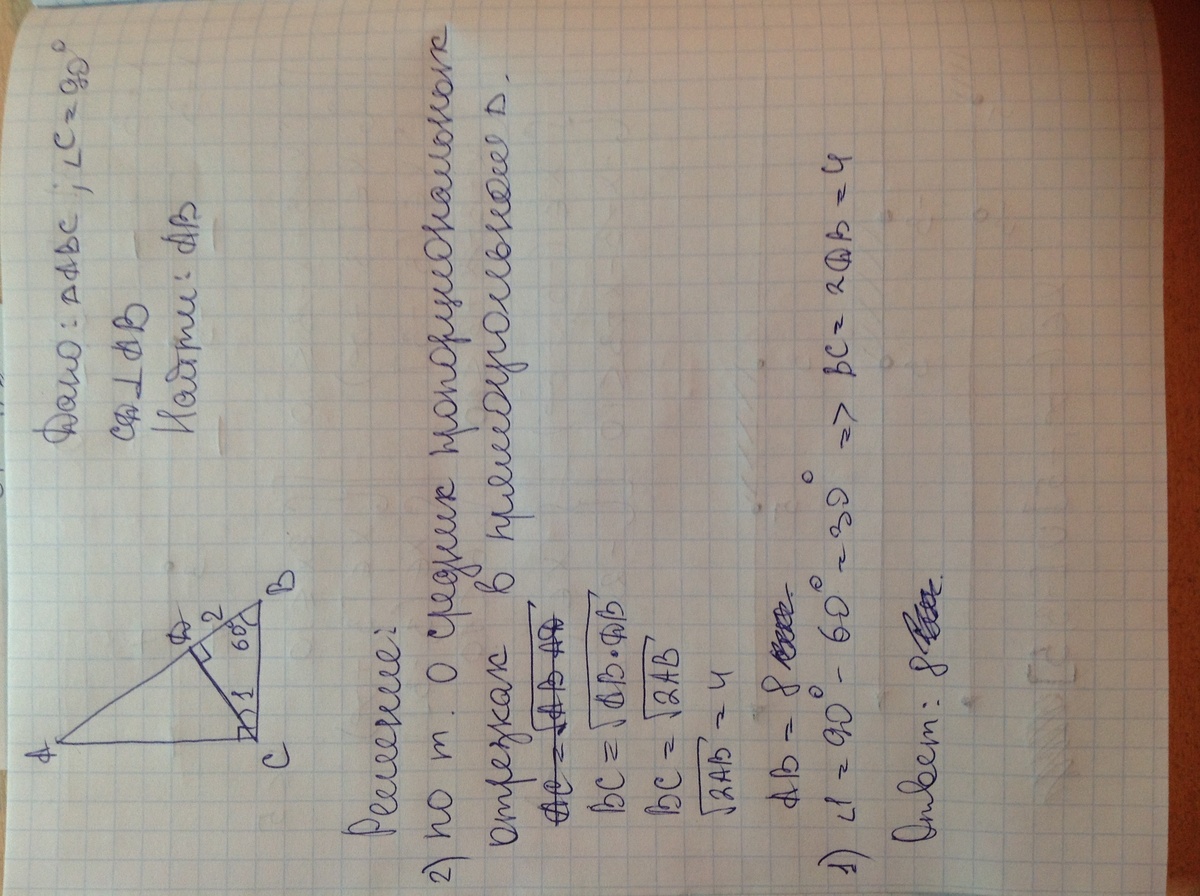 Дано: ΔABC; ∠C=90°
CD⊥AB
Найти: AB
A
D
2
60°
B
1
C
Решение:
2) по т. о средних пропорциональных
отрезках в прямоугольном Δ.
AC=√AB·AD
BC=√AB·DB
BC=√2AB
√2AB=4
AB=8
1) ∠1=90°-60°=30° => BC=2DB=4
Ответ: 8